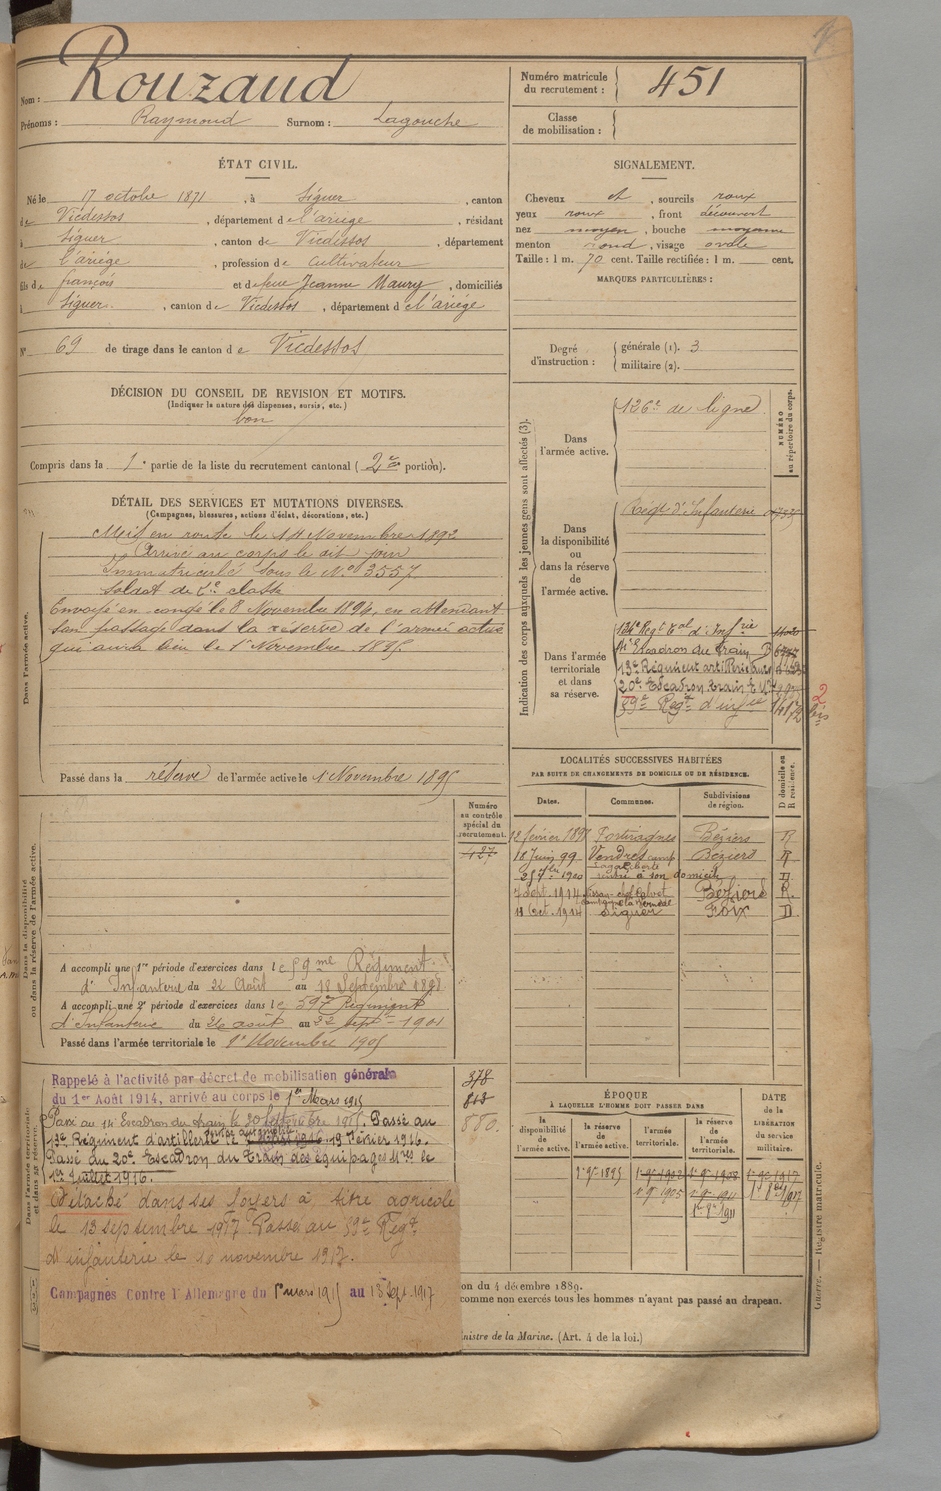 Nom : Rouzaud
Prénoms : Raymond Surnom : Lagouche
Numéro matricule du recrutement : 451
Classe de mobilisation :
ÉTAT CIVIL.
Né le 17 octobre 1871, à Siguer, canton
de Vicdessos, département de l'ariège, résidant
à Siguer, canton de Vicdessos, département
de l'ariége, profession de cultivateur
fils de françois et de feue Jeanne Maury, domiciliés
à Siguer, canton de Vicdessos, département de l'ariége
N° 69 de tirage dans le canton de Vicdessos
SIGNALEMENT.
Cheveux et, sourcils roux
yeux roux, front découvert
nez moyen, bouche moyenne
menton rond, visage ovale
Taille : 1 m. 70 cent. Taille rectifiée : 1 m. cent.
MARQUES PARTICULIÈRES :
Degré d'instruction : générale (1). 3
militaire (2).
DÉCISION DU CONSEIL DE REVISION ET MOTIFS.
(Indiquer la nature des dispenses, sursis, etc.)
bon
Compris dans la 1e partie de la liste du recrutement cantonal (2e portion).
DÉTAIL DES SERVICES ET MUTATIONS DIVERSES.
(Campagnes, blessures, actions d'éclat, décorations, etc.)
Dans l'armée active.
Mis en route le 14 Novembre 1892
Arrivé au corps le dit jour
Immatriculé sous le N° 3557
Soldat de 2e classe
Envoyé en congé le 8 Novembre 1894, en attendant
son passage dans la réserve de l'armée active
qui aura lieu le 1er Novembre 1895.
Passé dans la réserve de l'armée active le 1 Novembre 1895
Indication des corps auxquels les jeunes gens sont affectés (3).
NUMÉRO au répertoire du corps.
Dans l'armée active.
126e de ligne
Dans la disponibilité ou dans la réserve de l'armée active.
Régt d'Infanterie
Dans l'armée territoriale et dans sa réserve.
134e Régt tal d'Inf rie
14e Escadron du train
13e Régiment art
20e Escadron train
59e Régt d'inf rie
2 bis
LOCALITÉS SUCCESSIVES HABITÉES
PAR SUITE DE CHANGEMENTS DE DOMICILE OU DE RÉSIDENCE.
Dates. Communes. Subdivisions de région. D domicile ou R résidence.
Portiragnes Béziers R
18 Juin 99 Vendres Béziers R
1900 rentré à son domicile
7 Sept. 1914 Béziers R.
11 Oct. 1914 Siguer Foix D.
Dans la disponibilité ou dans la réserve de l'armée active.
Numéro au contrôle spécial du recrutement.
427
A accompli une 1re période d'exercices dans le 59me Régiment
d'Infanterie du 22 Août au 18 Septembre 1898
A accompli une 2e période d'exercices dans le 59e Régiment
d'Infanterie du 26 août au 22 sept 1901
Passé dans l'armée territoriale le 1er Novembre 1905
Dans l'armée territoriale et dans sa réserve.
378
813
880.
Rappelé à l'activité par décret de mobilisation générale
du 1er Août 1914, arrivé au corps le 1er Mars 1915
Passé au 14e Escadron du train le 1915. Passé au
13e Régiment d'artillerie 19 Février 1916.
Passé au 20e Escadron du Train des équipages Mres le
1er Juillet 1916.
Détaché dans ses foyers à titre agricole
le 13 septembre 1917 Passé au 59e Régt
d'infanterie le 10 novembre 1917.
Campagnes Contre l'Allemagne du 1er mars 1915 au 13 Sept 1917
ÉPOQUE
À LAQUELLE L'HOMME DOIT PASSER DANS
la disponibilité de l'armée active. la réserve de l'armée active. l'armée territoriale. la réserve de l'armée territoriale.
DATE de la LIBÉRATION du service militaire.
on du 4 décembre 1889.
comme non exercés tous les hommes n'ayant pas passé au drapeau.
nistre de la Marine. (Art. 4 de la loi.)
Guerre. — Registre matricule.